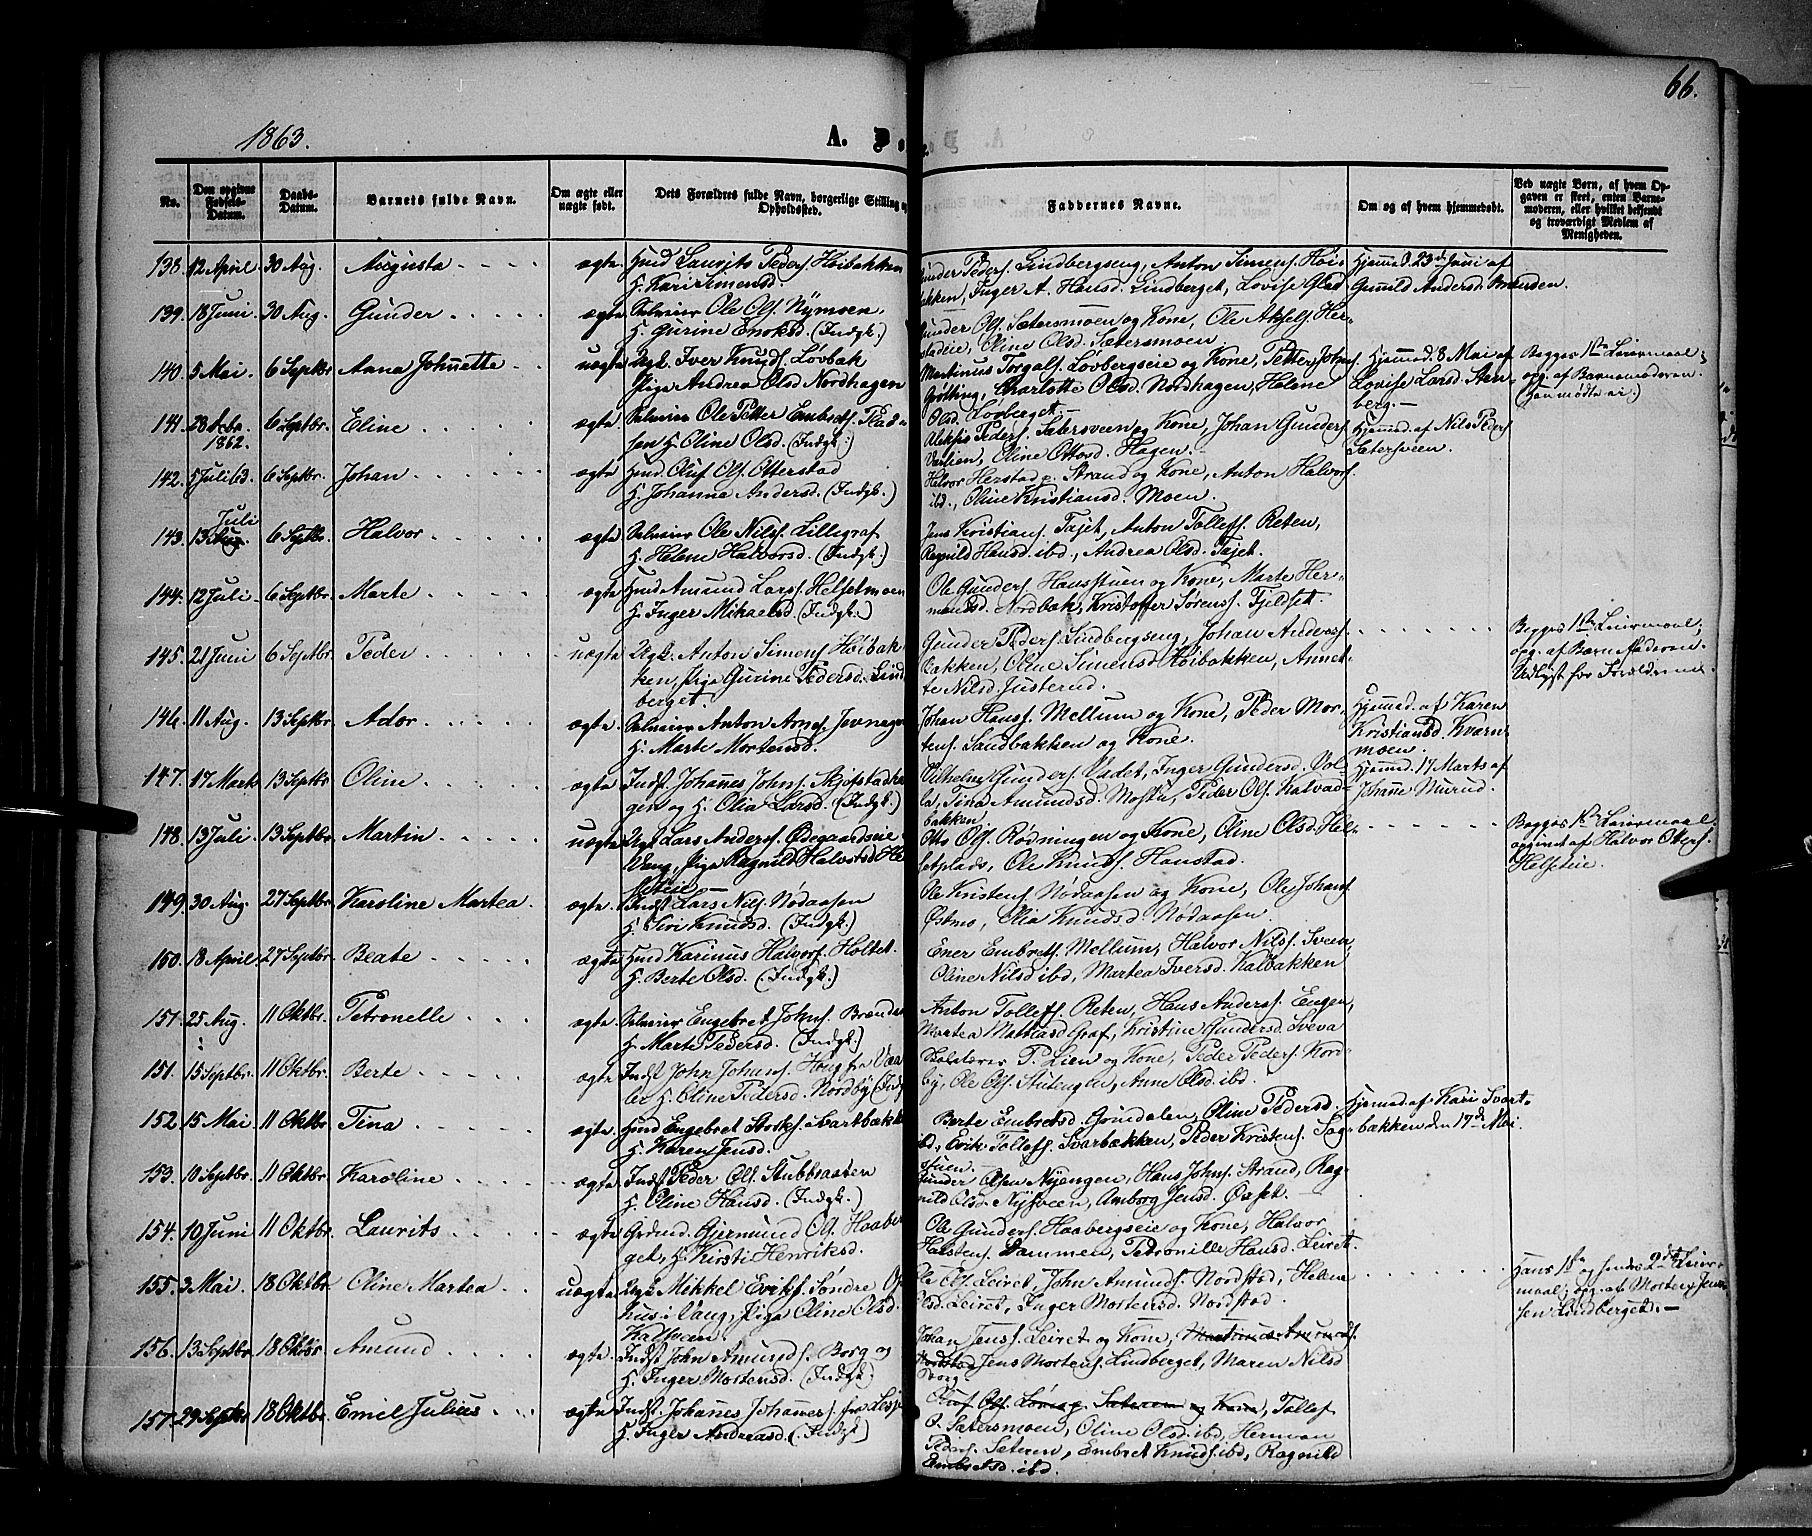 66.
1863.
A. D.
No.
Den opgivne Fødsels-Datum.
Daabs-Datum.
Barnets fulde Navn.
Om ægte eller uægte født.
Dets Forældres fulde Navn, borgerlige Stilling og Opholdssted.
Faddernes Navne.
Om og af hvem hjemmedøbt.
Ved uægte Børn, af hvem Opgaven er skeet, enten Barnemoderen, eller hvilket bekjendt og troværdigt Medlem af Menigheden.
138. 12 April 30 Aug. Augusta ægte Hmd Laurits Peders. Høibakken
H. Kari Simensd.
Gunder Peders. Lindbergseng, Anton Simens. Høi-
bakken, Inger A. Hansd. Lindberget, Lovise Glad
Hjemmd. 23d Juni af
Gunild Andersd. Branden.
139. 18 Juni 30 Aug. Gunder ægte Selveier Ole Ols. Nymoen,
H. Gurine Enoksd. (Indgk.)
Gunder Ols. Sætersmoen og Kone, Ole Aksels. Her-
stadeie, Oline Olsd. Sætersmoen.
140. 5 Mai 6 Septbr. Anna Johnette uægte Ugk. Iver Knuds. Løvbak
Pige Andrea Olsd. Nordhagen
Martinus Torgals. Løvbergseie og Kone, Petter Johns.
Grøtting, Charlotte Olsd. Nordhagen, Helene
Olsd. Løvberget.
Hjemmd. 8 Mai af
Lovise Larsd. Sten-
berg.
Begges 1ste Leiermaal;
opg. af Barnemoderen.
(Han mødte ei.)
141. 28 1862. 6 Septbr. Eline ægte Selveier Ole Petter Embrets. Plad-
sen H. Oline Olsd. (Indgk.)
Aleksis Peders. Sætersveen og Kone, Johan Gunders.
Vaslien, Oline Ottosd. Hagen.
Hjemmd. af Nils Peders.
Sætersveen.
142. 5 Juli 6 Septbr. Johan ægte Hmd Oluf Ols. Otterstad
H. Johanna Andersd. (Indgk.)
Halvor Herstad p. Strand og Kone, Anton Halvors.
ibd., Oline Kristiansd. Moen.
143. 13 Juli 6 Septbr. Halvor ægte Selveier Ole Nils. Lillegraf
H. Helene Halvorsd. (Indgk.)
Jens Kristians. Tajet, Anton Tollefs. Reten,
Ragnild Hansd. ibd., Andrea Olsd. Tajet.
144. 12 Juli 6 Septbr. Marte ægte Hmd Amund Lars. Helsetmoen
H. Inger Mikaelsd. (Indgk.)
Ole Gunders. Hansstuen og Kone, Marte Her-
mansd. Nordbak, Kristoffer Sørens. Fjeldset.
145. 21 Juni 6 Septbr. Peder uægte Ugk. Anton Simens. Høibak-
ken, Pige Gurine Pedersd. Lind-
berget.
Gunder Peders. Lindbergseng, Johan Anders.
Bakken, Oline Simensd. Høibakken, Annet-
te Nilsd. Justerud.
Begges 1ste Leiermaal;
opg. af Barnefaderen.
Udlyst for Forældrene.
146. 11 Aug. 13 Septbr. Ador ægte Selveier Anton Arnes.
H. Marte Mortensd.
Johan Hans. Mellum og Kone, Peder Mor-
tens. Sandbakken og Kone.
Hjemmd. af Karen
Kristiansd. Kvern-
moen.
147. 17 Marts 13 Septbr. Oline ægte Indst. Johanes Johns. Skjefstadha-
gen og H. Olia Larsd. (Indgk.)
Vilhelm Gunders. Vadet, Inger Gundersd. Vol-
la, Tina Amundsd. Mostu, Peder Ols. Kalvad-
bakken.
Hjemmd. 17 Marts af
Johanne Murud.
148. 13 Juli 13 Septbr. Martin uægte Ugk. Lars Anders. Ødegaardseie
Vang, Pige Ragnild Halvorsd. He
Otto Ols. Rødningen og Kone, Oline Olsd. Hel-
setplads, Ole Knuds. Hanstad.
Begges 1ste Leiermaal
opgivet af Halvor Otters.
Helseteie.
149. 30 Aug. 27 Septbr. Karoline Martea ægte Indst. Lars Nils. Nødaasen
H. Siri Knudsd. (Indgk.)
Ole Kristens. Nødaasen og Kone, Ole Johans.
Østmo, Olia Knudsd. Nødaasen.
150. 18 April 27 Septbr. Beate ægte Hmd Karinus Halvors. Holtet
H. Berte Olsd. (Indgk.)
Ener Embrets. Mellum, Halvor Nils. Sveen,
Oline Nilsd ibd., Martea Iversd. Kalbakken
151. 25 Aug. 11 Oktbr. Petronelle ægte Selveier Engebret Johns.
H. Marte Pedersd. (Indgk.)
Anton Tollefs. Reten, Hans Anders. Engen,
Martea Mathiasd. Graf, Kristine Gundersd. Sveva
151. 15 Septbr. 11 Oktbr. Berte ægte Indst. John Johans. Haug fra Vaa-
ler H. Oline Pedersd. Nordby (Indg
Skolelærer P. Lien og Kone, Peder Peders. Nord-
by, Ole Ols. Stutengen, Anne Olsd. ibd.
152. 15 Mai 11 Oktbr. Tina ægte Hmd Engebret Svartbakk
H. Karen Jensd.
Berte Embretsd. Grindalen, Oline Pedersd.
ibd., Erik Tollefs. Svarbækken, Peder Kristens. Sag-
stuen.
Hjemmd. af Kari Svart-
bækken den 17de Mai
153. 10 Septbr. 11 Oktbr. Karoline ægte Indst. Peder Ols. Stubbsaaten
H. Eline Hansd. (Indgk.)
Gunder Olsen Nyengen, Hans Johns. Strand, Rag-
nild Olsd. Nysveen, Amborg Jensd. Øaset.
154. 10 Juni 11 Oktbr. Laurits ægte Grdmd. Gjermund Ols. Haaber-
get, H. Kirsti Henriksd.
Ole Gunders. Haabergseie og Kone, Halvor
Halstens. Dammen, Petronille Hansd. Leiret.
155. 3 Mai 18 Oktbr. Oline Martea uægte Ugk. Mikkel Eriks. Søndre
hus i Vang, Pige Oline Olsd.
Kalsveen
Ole Ols. Leiret, John Amunds. Nordstad, Helene
Olsd. Leiret, Inger Mortensd. Nordstad.
Hans 1ste og hendes 2det Leier-
maal; opg. af Morten Jen-
sen Lindberget.
156. 13 Septbr. 18 Oktbr. Amund ægte Indst. John Amunds. Borg og
H. Inger Mortensd. (Indgk.)
Johan Jens. Leiret og Kone, Martinus Amunds.
Nordstad Jens Mortens. Lindberget, Maren Nilsd
Borg.
157. 29 Septbr. 18 Oktbr. Emil Julius ægte Indst. Johanes Johannes. fra Lesje
H. Inger Andreasd. (Indgk.)
Oluf Ols. Sæteren og Kone, Tollef
O. Sætersmoen, Oline Olsd. ibd, Herman
Peders. Sæteren, Embret Knuds. ibd., Ragnild
Embretsd. ibd.